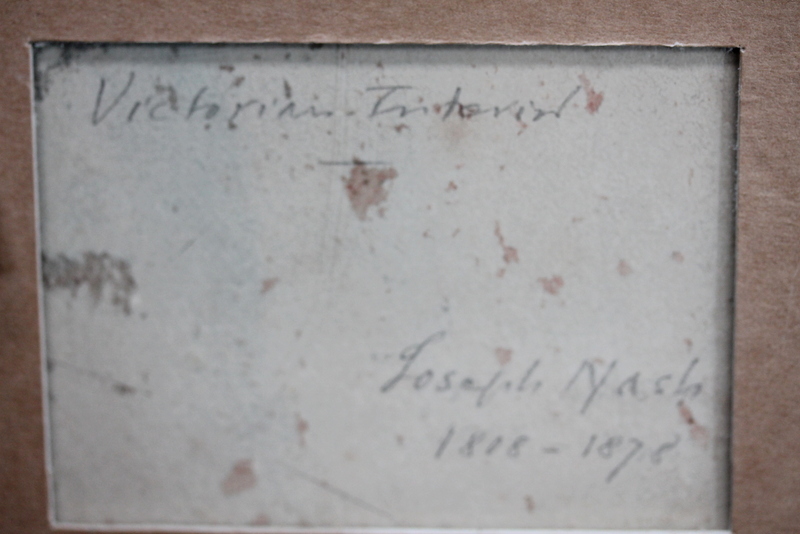 Victorian Interior
Joseph Nash
1808-1878